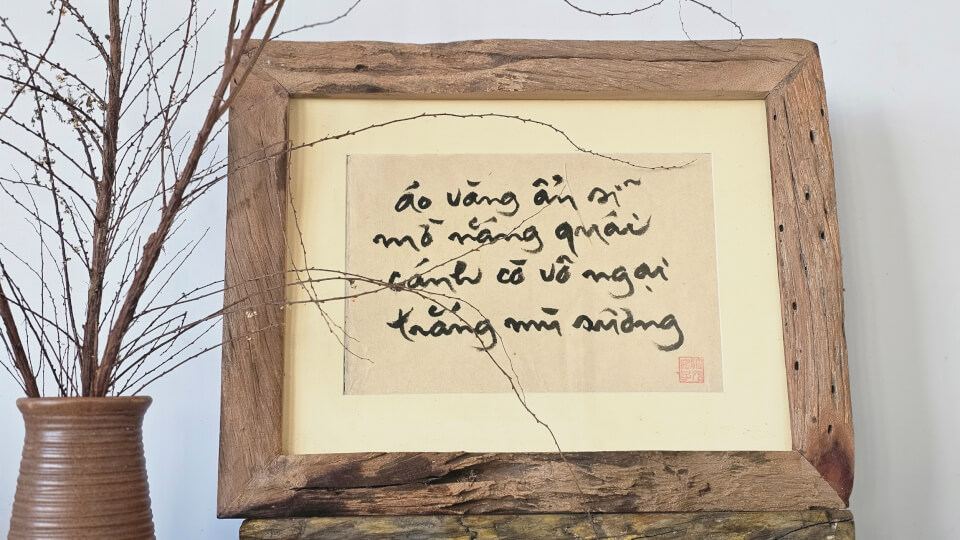 áo vàng ẩn sĩ
mờ nắng quái
cánh cò vô ngại
trắng mù sương